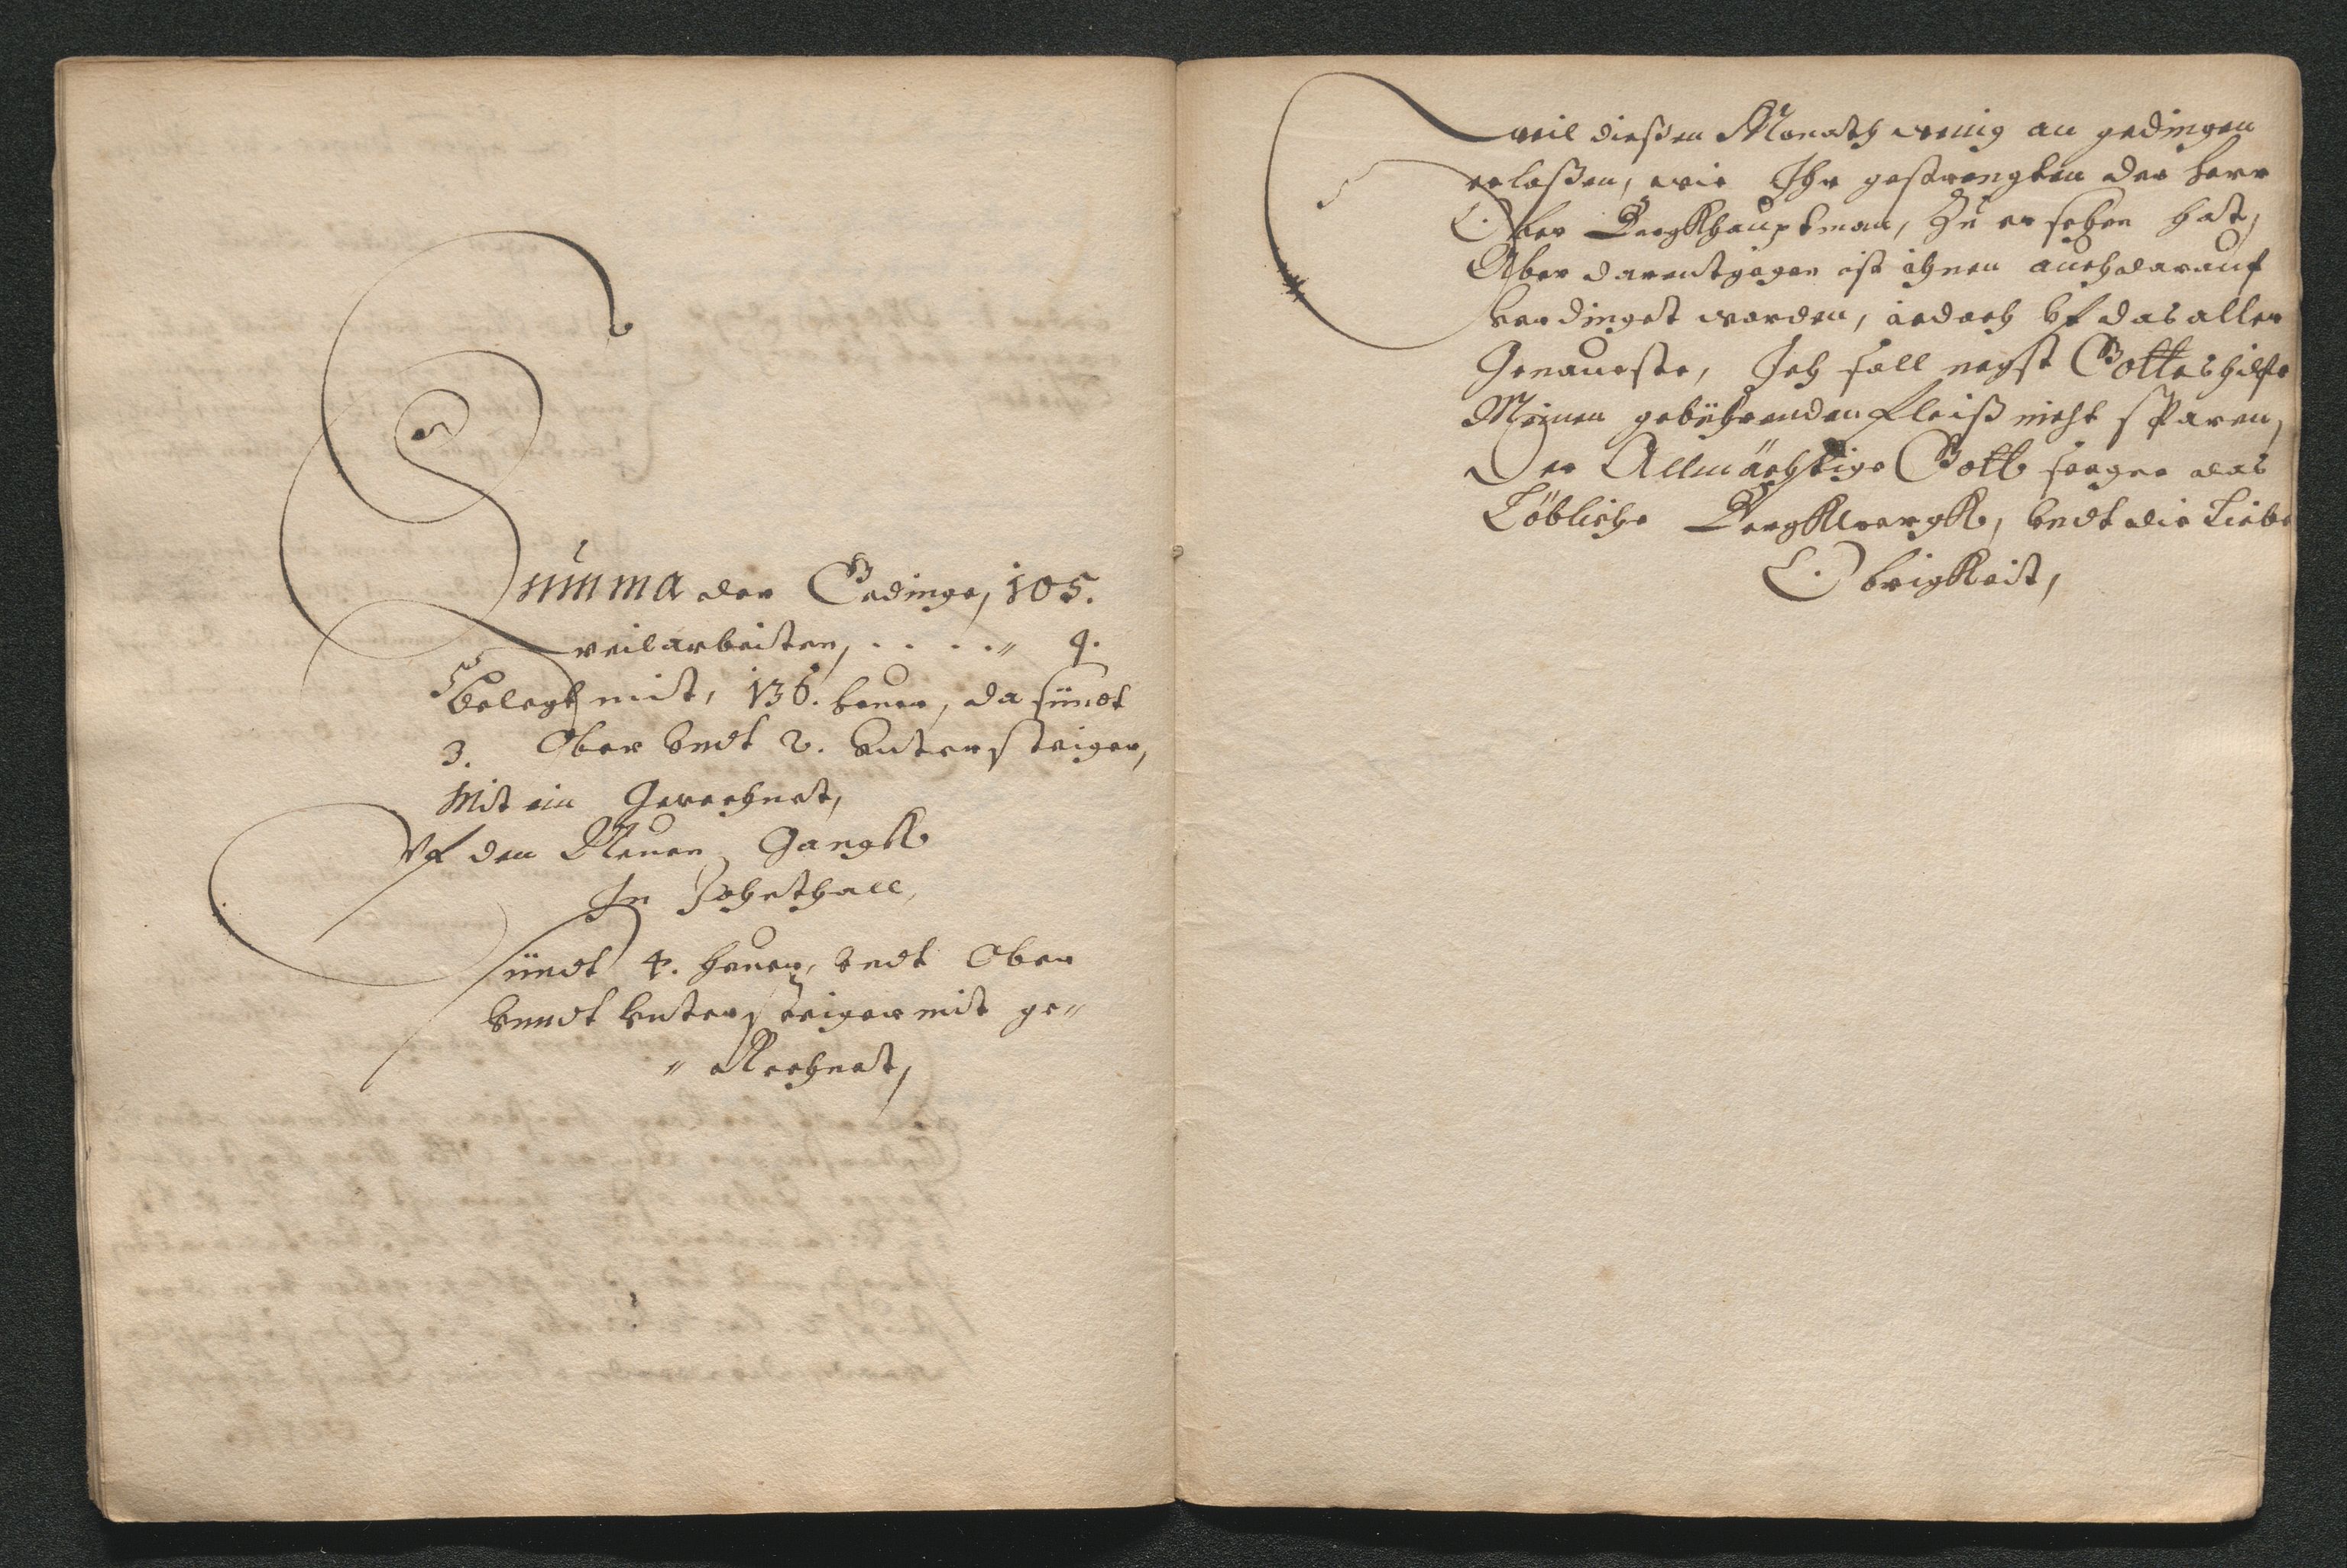 Summa der Gedinge, 105.
weilarbeitten, . . . . " 4.
Belegt mit, 136. heuer, da sündt
3. Ober vndt 2. Vntersteiger,
Mit ein Gerechnet,
Vf den Neuen Gangk
In
sündt 4. heuer, vndt Ober
vnndt vntersteiger mit ge"
" Rechnet,
weil dießen Monath wenig an gedingen
erlaßen, wie Ihr gestrengten der herr
Ober Bergkhauptman, Zu ersehen hat,
Aber darentgegen ist ihnen auch darauf
verdinget worden, iedoch vf das aller
Genaueste, Ich soll negst Gottes hilfe
Meinen gebührenden Fleiß nicht sparen,
Der Allmächtige Gott seegne das
Löbliche Bergkwergk, vndt die Liebe
Obrigkeit,